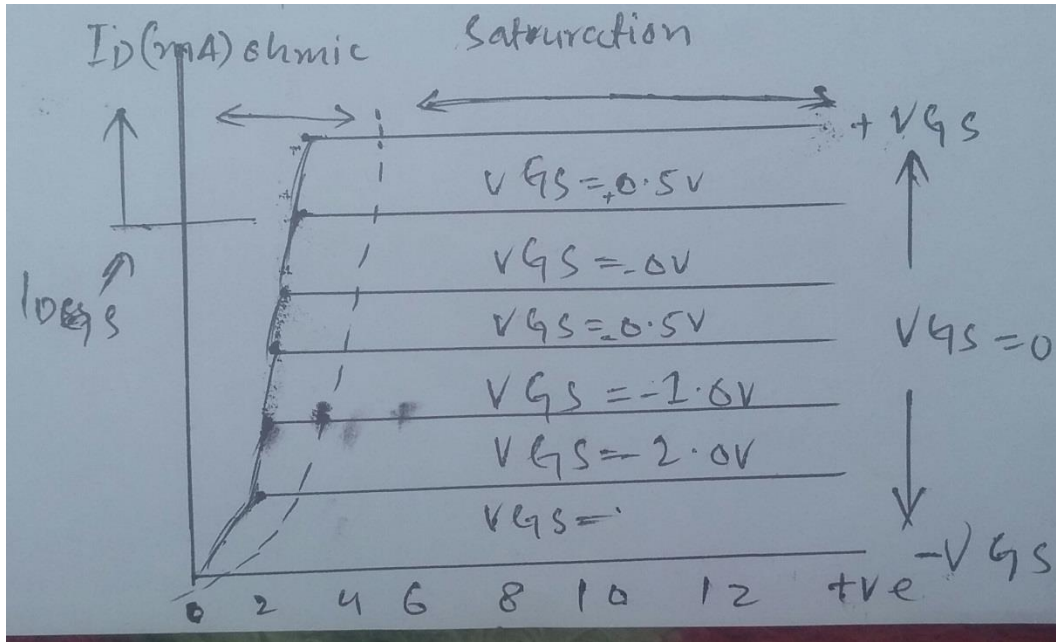 ID(mA) ohmic
Satrurction
+ VGS
VGS=+0.5V
VGS=-0V
IDGS
VGS=-0.5V
VGS=0
VGS=-1.0V
VGS=-2.0V
VGS=-
-VGS
0 2 4 6 8 10 12 +ve